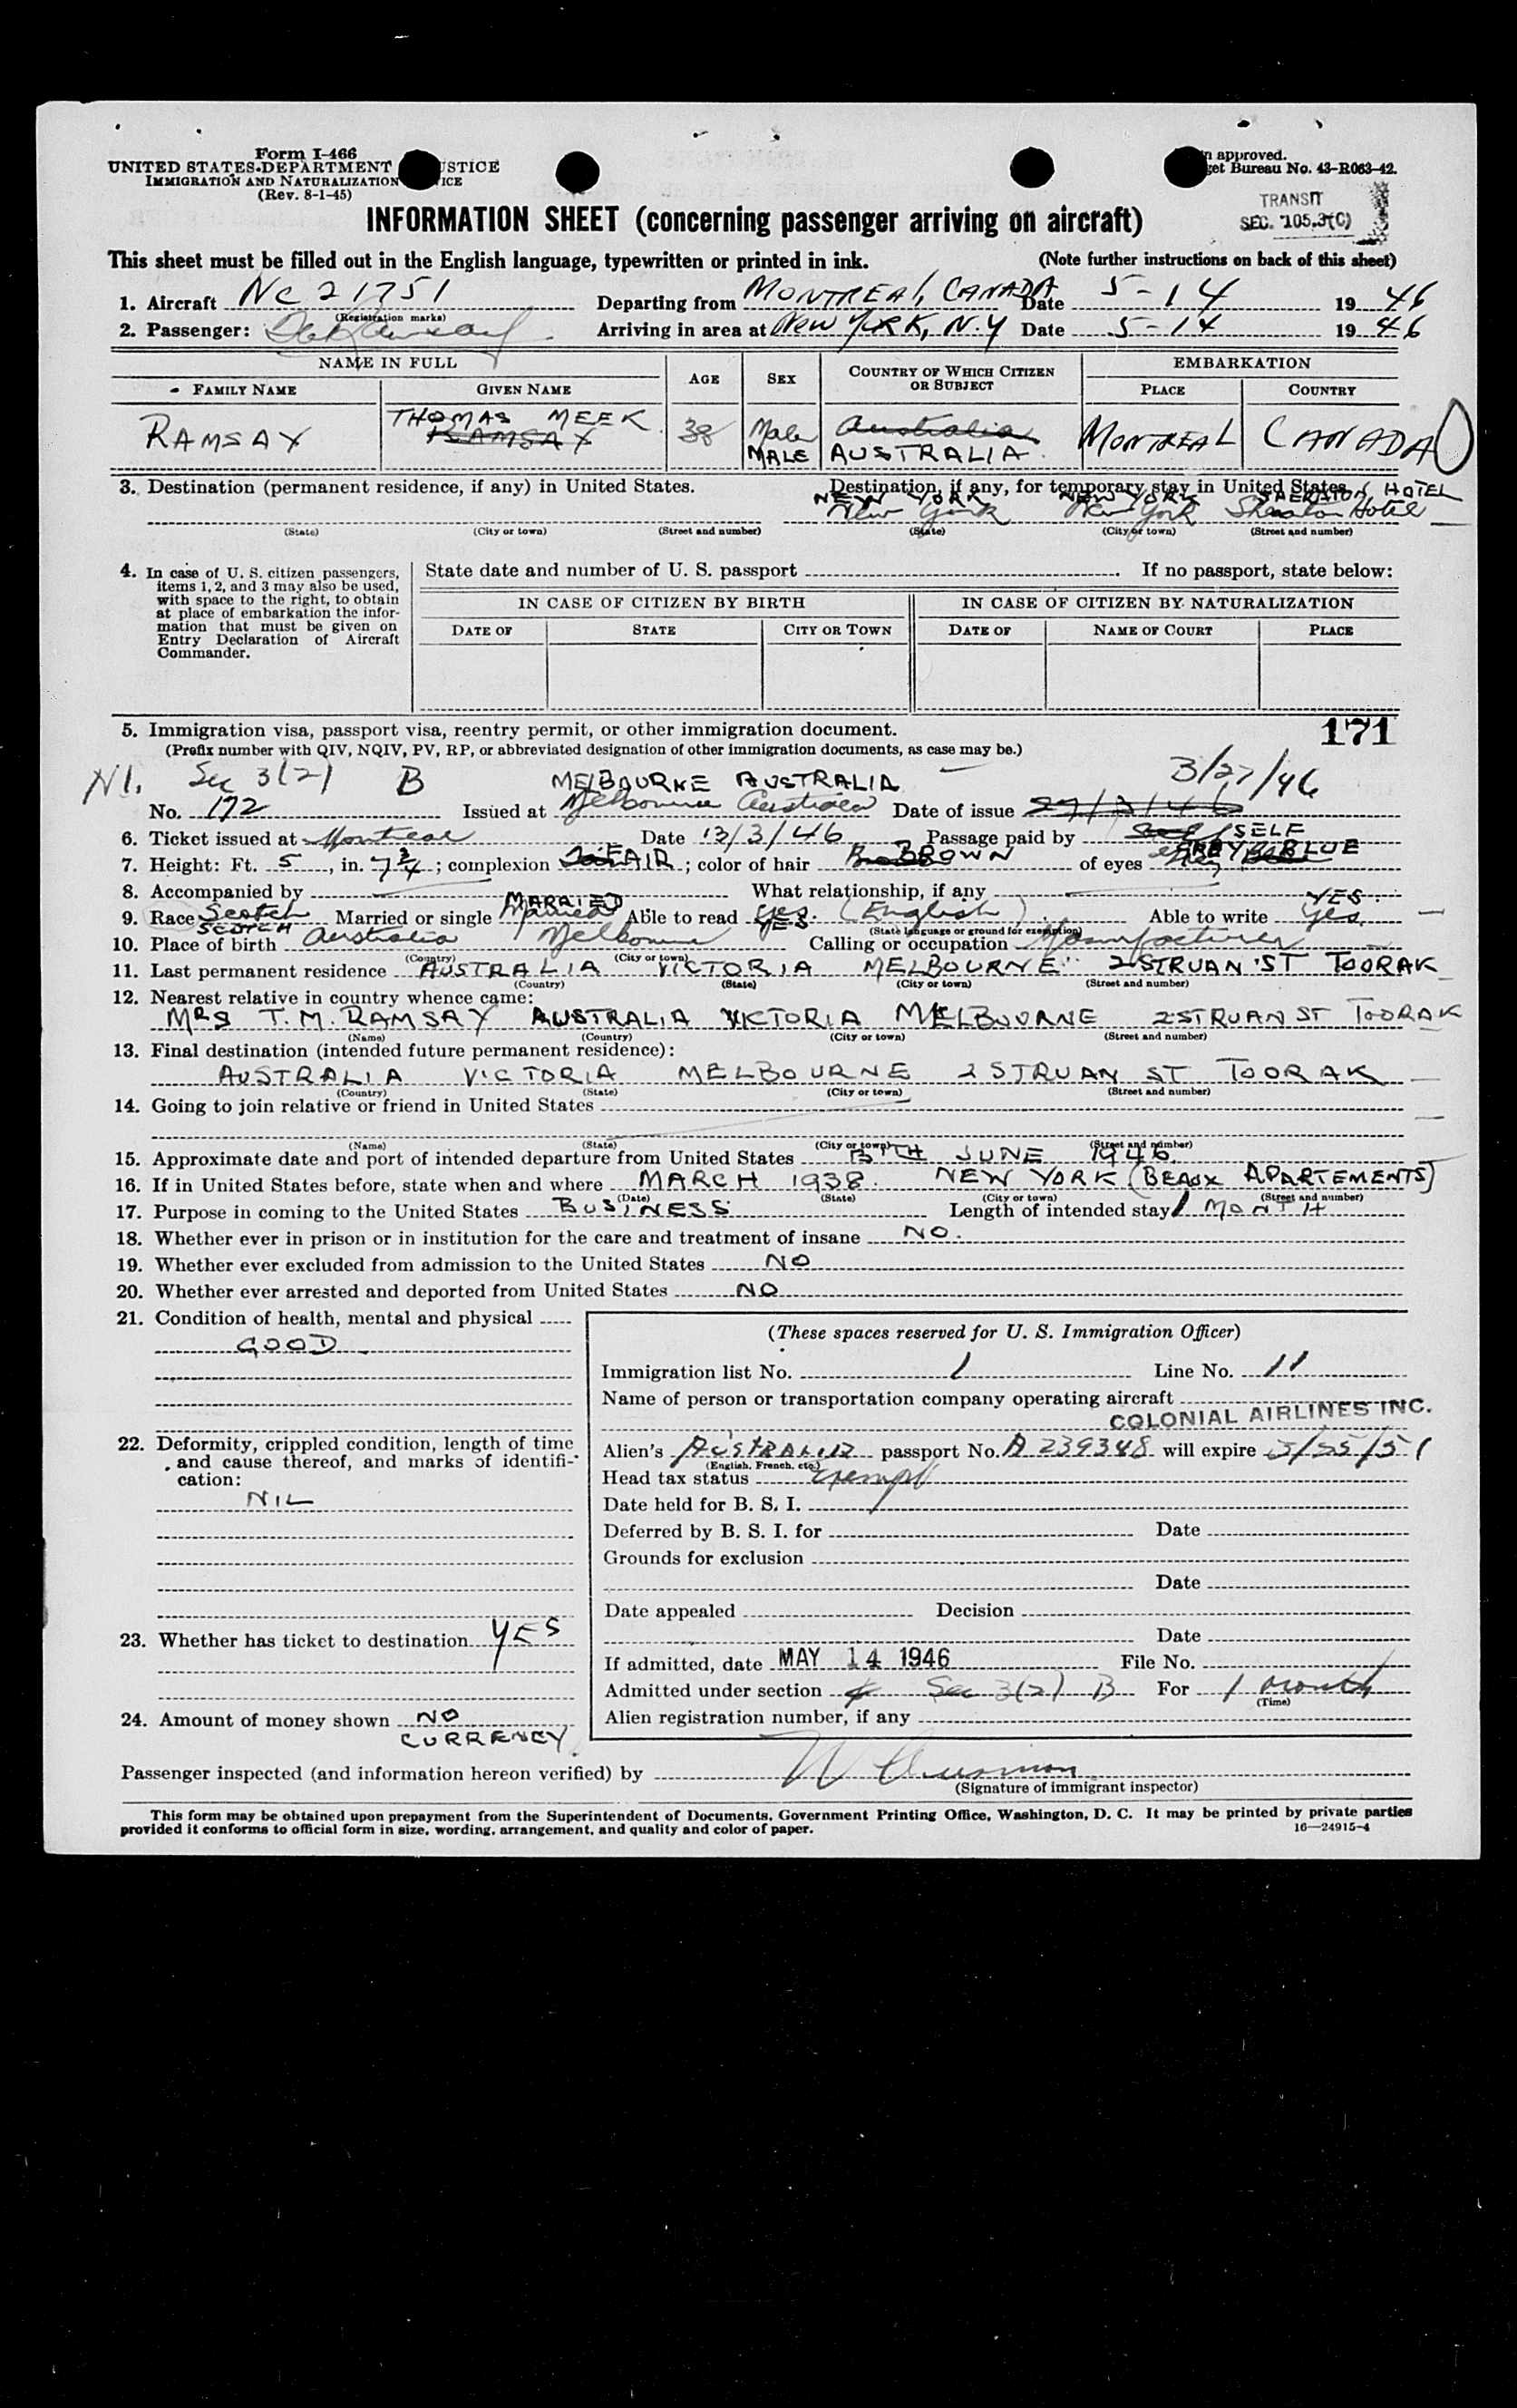 Form I-466
UNITED STATES DEPARTMENT USTICE
IMMIGRATION AND NATURALIZATION ICE
(Rev. 8-1-45)
n approved.
get Bureau No. 43-R063-42.
TRANSIT
SEC. 105.3(C)
INFORMATION SHEET (concerning passenger arriving on aircraft)
This sheet must be filled out in the English language, typewritten or printed in ink. (Note further instructions on back of this sheet)
1. Aircraft NC 21751 Departing from MONTREAL, CANADA Date 5-14 1946
(Registration marks)
2. Passenger: Arriving in area at NEW YORK, N.Y Date 5-14 1946
NAME IN FULL AGE SEX COUNTRY OF WHICH CITIZEN OR SUBJECT EMBARKATION
FAMILY NAME GIVEN NAME PLACE COUNTRY
RAMSAY THOMAS MEEK RAMSAY 38 Male MALE Australia AUSTRALIA MONTREAL CANADA
3. Destination (permanent residence, if any) in United States. Destination, if any, for temporary stay in United States
NEW YORK NEW YORK SHERATON HOTEL
New York New York Sheraton Hotel
(State) (City or town) (Street and number) (State) (City or town) (Street and number)
4. In case of U. S. citizen passengers, items 1, 2, and 3 may also be used, with space to the right, to obtain at place of embarkation the information that must be given on Entry Declaration of Aircraft Commander.
State date and number of U. S. passport . If no passport, state below:
IN CASE OF CITIZEN BY BIRTH IN CASE OF CITIZEN BY NATURALIZATION
DATE OF STATE CITY OR TOWN DATE OF NAME OF COURT PLACE
5. Immigration visa, passport visa, reentry permit, or other immigration document. 171
(Prefix number with QIV, NQIV, PV, RP, or abbreviated designation of other immigration documents, as case may be.)
NI. Sec 3(2) B MELBOURNE AUSTRALIA 3/27/46
No. 172 Issued at Melbourne Australia Date of issue 27/3/46
6. Ticket issued at Montreal Date 13/3/46 Passage paid by Self SELF
7. Height: Ft. 5, in. 7 3/4; complexion FAIR; color of hair Brown BROWN of eyes GREY BLUE
8. Accompanied by What relationship, if any
MARRIED YES
9. Race Scotch Married or single Married Able to read Yes. (English) Able to write Yes
SCOTCH YES (State language or ground for exemption)
10. Place of birth Australia Melbourne Calling or occupation Manufacturer
(Country) (City or town)
11. Last permanent residence AUSTRALIA VICTORIA MELBOURNE 2 STRUAN ST TOORAK
(Country) (State) (City or town) (Street and number)
12. Nearest relative in country whence came:
MRS T. M. RAMSAY AUSTRALIA VICTORIA MELBOURNE 2 STRUAN ST TOORAK
(Name) (Country) (City or town) (Street and number)
13. Final destination (intended future permanent residence):
AUSTRALIA VICTORIA MELBOURNE 2 STRUAN ST TOORAK
(Country) (State) (City or town) (Street and number)
14. Going to join relative or friend in United States
(Name) (State) (City or town) (Street and number)
15. Approximate date and port of intended departure from United States JUNE 1946.
16. If in United States before, state when and where MARCH 1938. NEW YORK (BEAUX APARTEMENTS)
(Date) (State) (City or town) (Street and number)
17. Purpose in coming to the United States BUSINESS Length of intended stay 1 MONTH
18. Whether ever in prison or in institution for the care and treatment of insane NO.
19. Whether ever excluded from admission to the United States NO
20. Whether ever arrested and deported from United States NO
21. Condition of health, mental and physical
GOOD
22. Deformity, crippled condition, length of time and cause thereof, and marks of identification:
NIL
23. Whether has ticket to destination YES
24. Amount of money shown NO
CURRENCY
(These spaces reserved for U. S. Immigration Officer)
Immigration list No. 1 Line No. 11
Name of person or transportation company operating aircraft
COLONIAL AIRLINES INC.
Alien's passport No. A 239348 will expire 3/25/51
(English, French, etc.)
Head tax status Exempt
Date held for B. S. I.
Deferred by B. S. I. for Date
Grounds for exclusion
Date
Date appealed Decision
Date
If admitted, date MAY 14 1946 File No.
Admitted under section Sec 3(2) B For 1 month
(Time)
Alien registration number, if any
Passenger inspected (and information hereon verified) by
(Signature of immigrant inspector)
This form may be obtained upon prepayment from the Superintendent of Documents, Government Printing Office, Washington, D. C. It may be printed by private parties
provided it conforms to official form in size, wording, arrangement, and quality and color of paper. 16—24915-4